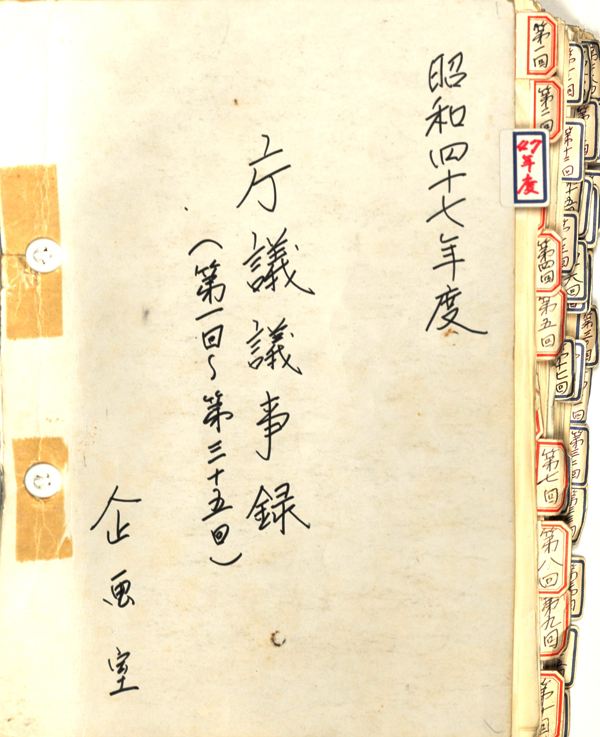 昭和四十七年度
庁議議事録
(第一回~第三十五回)
企画室
47年度
第一回
第二回
第四回
第五回
第七回
第八回
第九回
第十
第十二回
第十七回